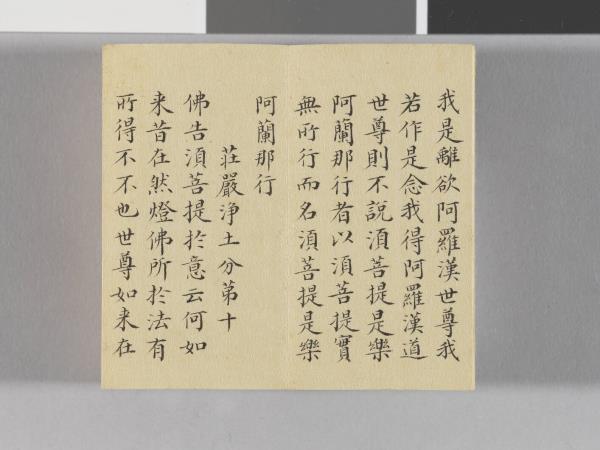 我是離欲阿羅漢世尊我
若作是念我得阿羅漢道
世尊則不說須菩提是樂
阿蘭那行者以須菩提實
無所行而名須菩提是樂
阿蘭那行
莊嚴淨土分第十
佛告須菩提於意云何如
来昔在然燈佛所於法有
所得不不也世尊如来在